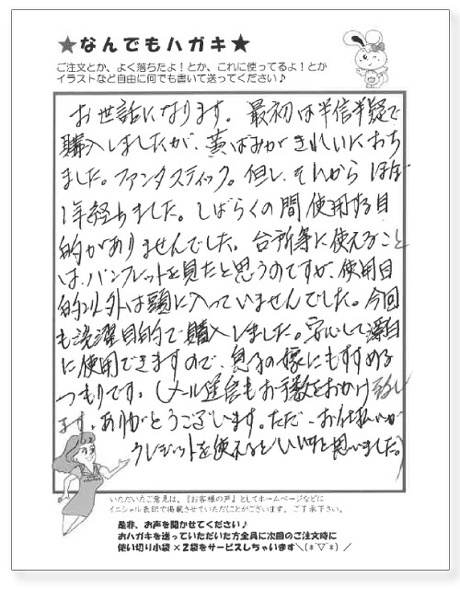 ★なんでもハガキ★
ご注文とか、よく落ちたよ!とか、これに使ってるよ!とか
イラストなど自由に何でも書いて送ってください♪
お世話になります。最初は半信半疑で
購入しましたが、黄ばみがきれいにおち
ました。ファンタスティック。但し、それから ほぼ
1年経ちました。しばらくの間使用する目
的がありませんでした。台所等に使えること
は、パンフレットを見たと思うのですが、使用目
的以外は頭に入っていませんでした。今回
も洗濯目的で購入しました。安心して漂白
に使用できますので、息子の嫁にもすすめる
つもりです。(メール送信もお手数をおかけ致し
ます。ありがとうございます。ただ、お仕払いが
クレジットを使えるといいのにと思いました。)
いただいたご意見は、『お客様の声』としてホームページなどに
イニシャル表記で掲載させていただくことがございます。ご了承下さい。
是非、お声を聞かせてください♪
おハガキを送っていただいた方全員に次回のご注文時に
使い切り小袋×2袋をサービスしちゃいます＼(*´▽`*)／